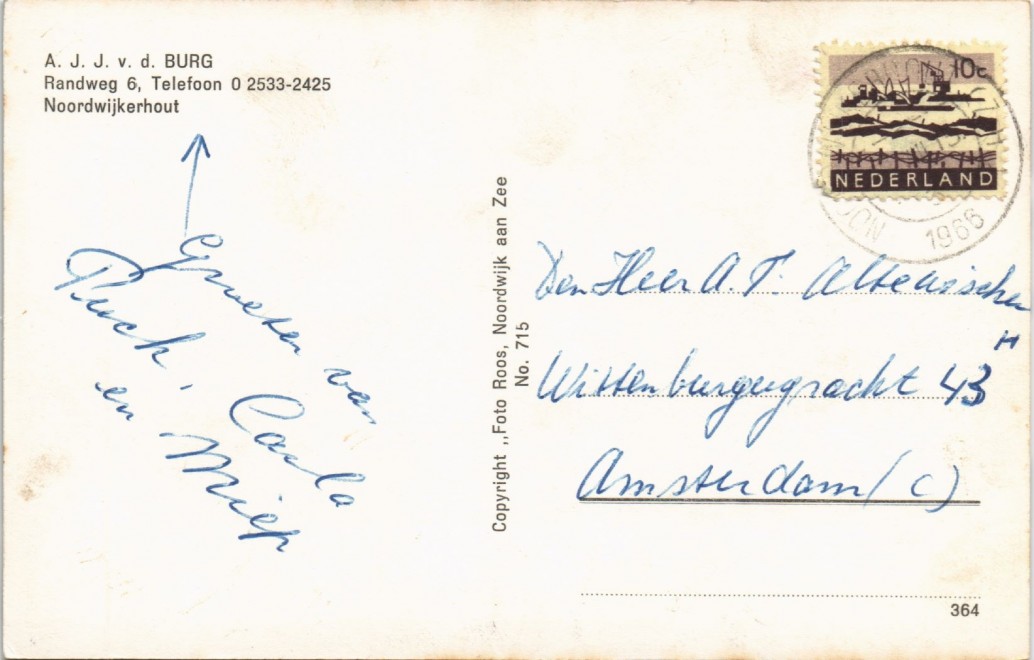 A. J. J. v. d. BURG
Randweg 6, Telefoon 0 2533-2425
Noordwijkerhout
Groeten van
Puck. Carla
en Miep
Copyright „Foto Roos, Noordwijk aan Zee
No. 715
10c
NEDERLAND
1966
Den Heer A.T.
Wittenburgergracht 43 H
Amsterdam (C)
364